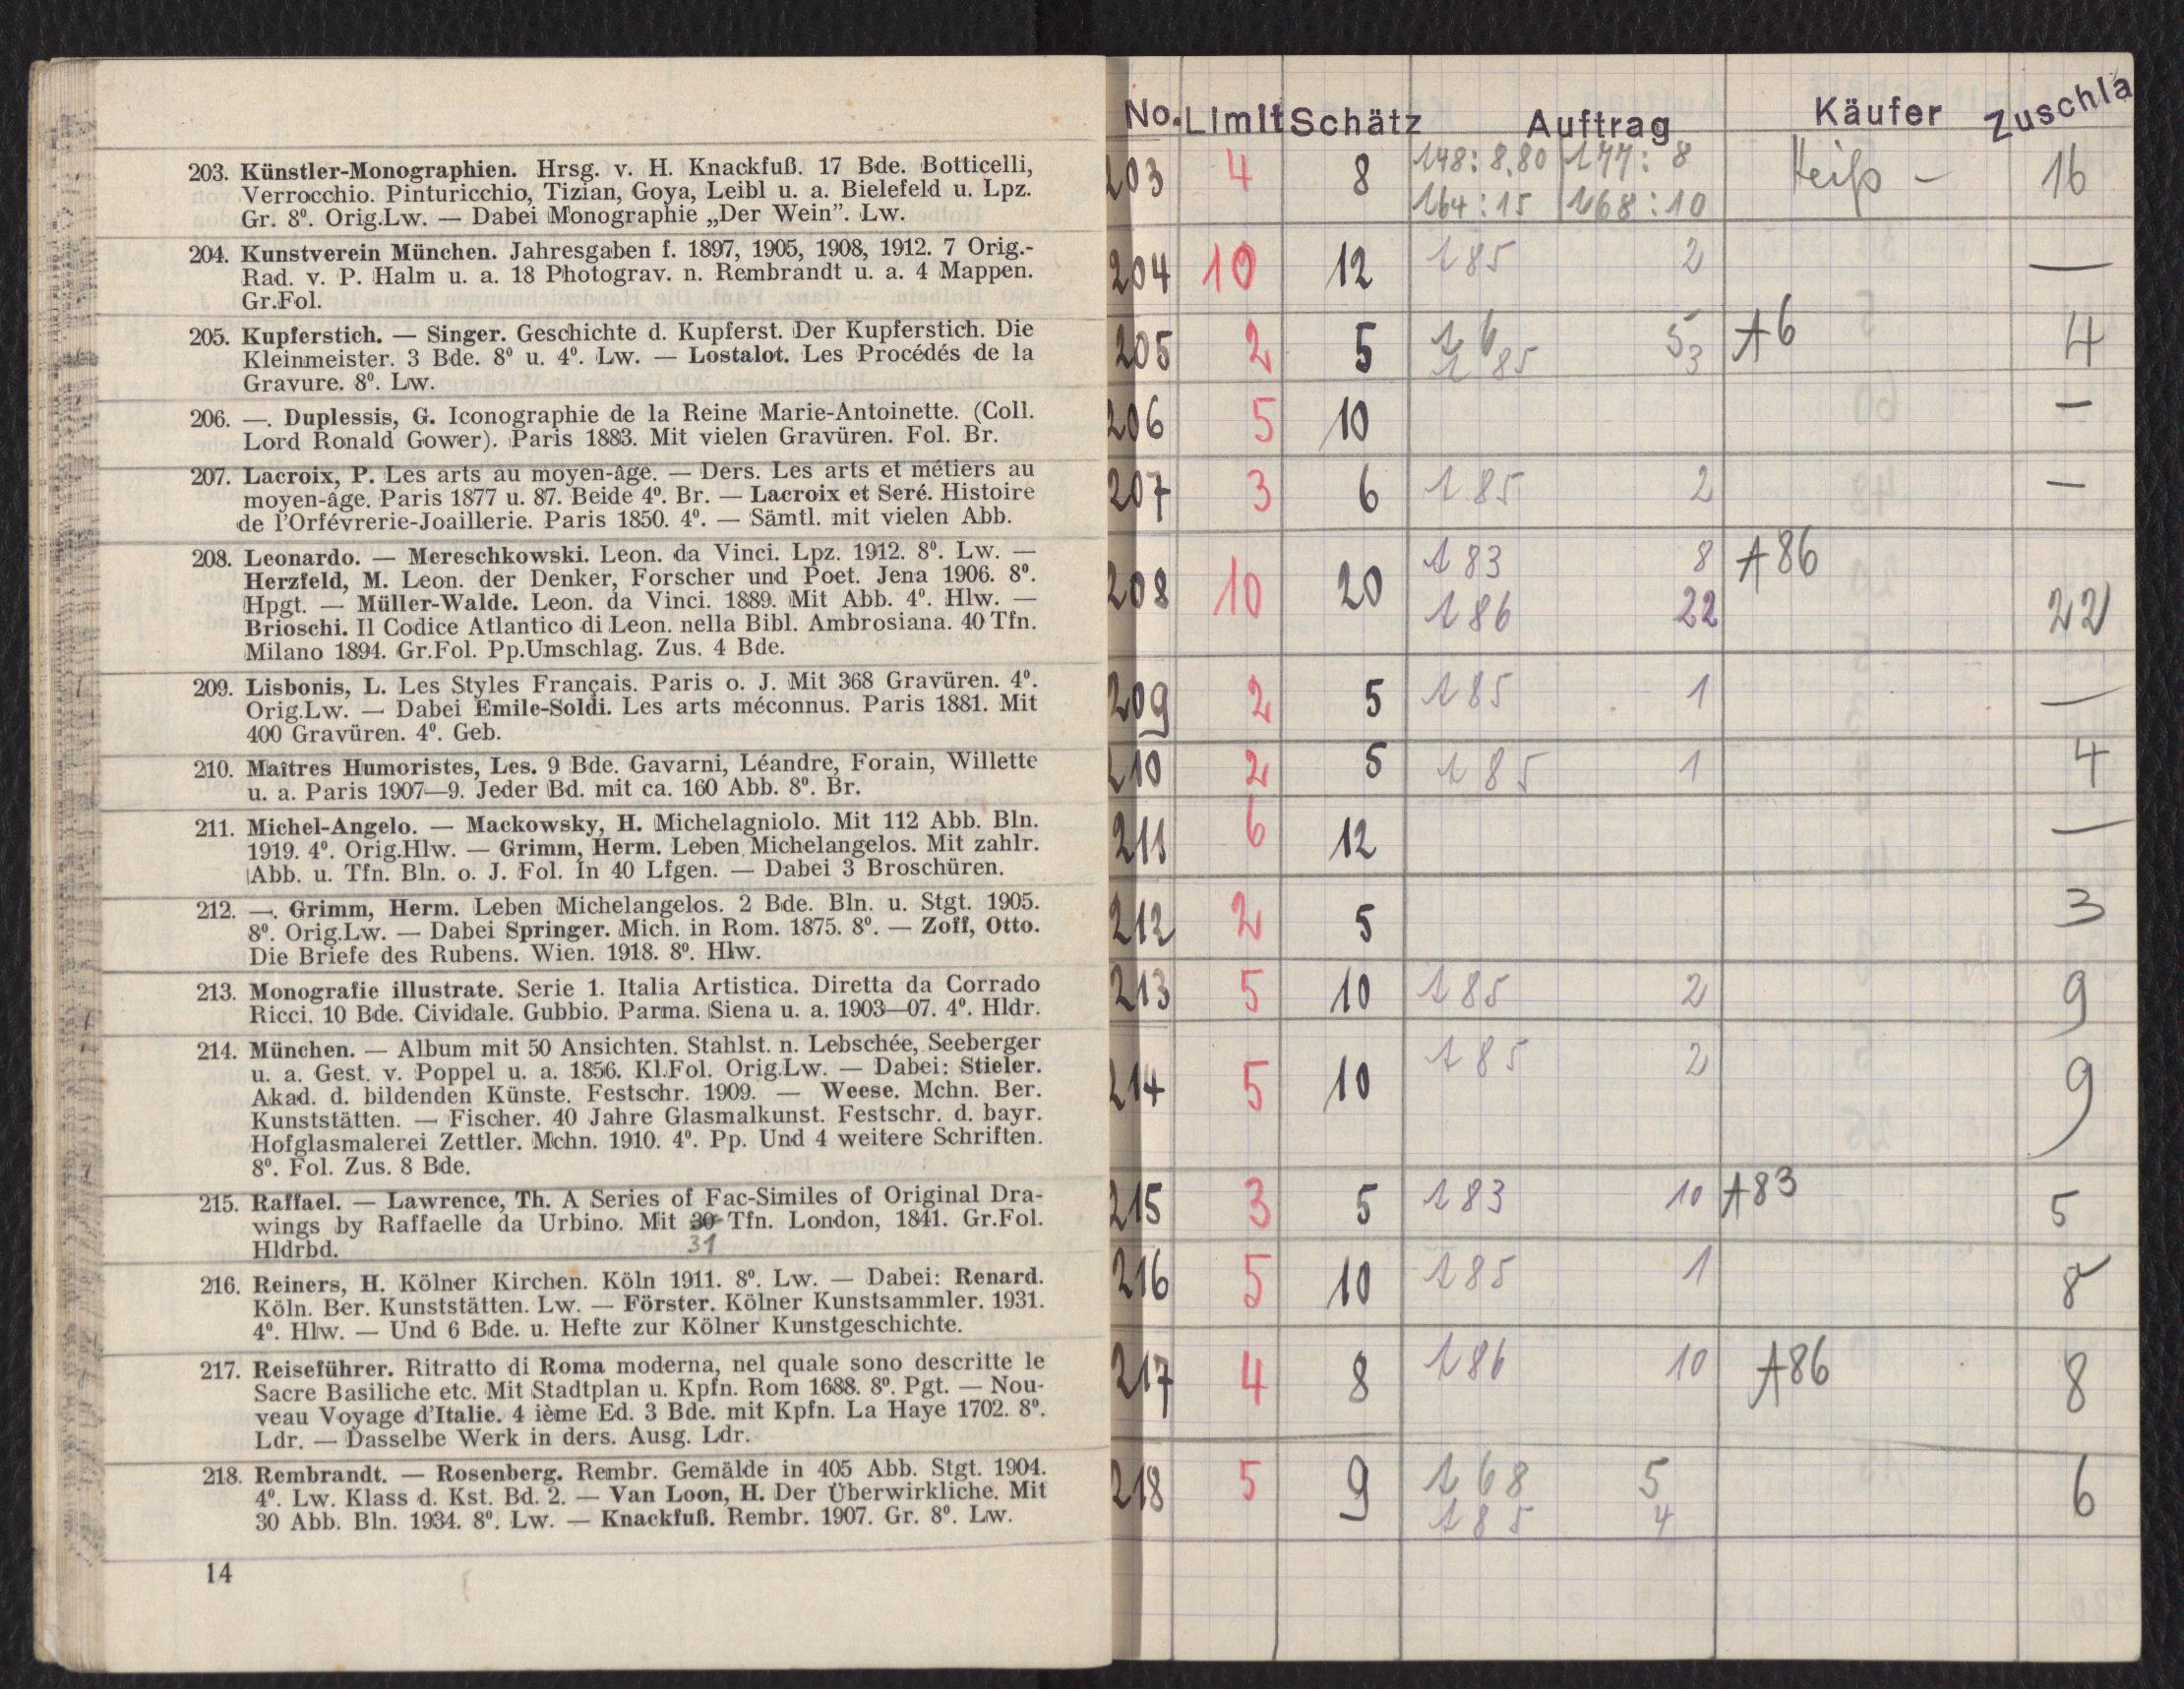 203. Künstler-Monographien. Hrsg. v. H. Knackfuß. 17 Bde. Botticelli,
Verrocchio. Pinturicchio, Tizian, Goya, Leibl u. a. Bielefeld u. Lpz.
Gr. 8⁰. Orig.Lw. — Dabei Monographie „Der Wein”. Lw.
204. Kunstverein München. Jahresgaben f. 1897, 1905, 1908, 1912. 7 Orig.-
Rad. v. P. Halm u. a. 18 Photograv. n. Rembrandt u. a. 4 Mappen.
Gr.Fol.
205. Kupferstich. — Singer. Geschichte d. Kupferst. Der Kupferstich. Die
Kleinmeister. 3 Bde. 8⁰ u. 4⁰. Lw. — Lostalot. Les Procédés de la
Gravure. 8⁰. Lw.
206. —. Duplessis, G. Iconographie de la Reine Marie-Antoinette. (Coll.
Lord Ronald Gower). Paris 1883. Mit vielen Gravüren. Fol. Br.
207. Lacroix, P. Les arts au moyen-âge. — Ders. Les arts et métiers au
moyen-âge. Paris 1877 u. 87. Beide 4⁰. Br. — Lacroix et Seré. Histoire
de l'Orfévrerie-Joaillerie. Paris 1850. 4⁰. — Sämtl. mit vielen Abb.
208. Leonardo. — Mereschkowski. Leon. da Vinci. Lpz. 1912. 8⁰. Lw. —
Herzfeld, M. Leon. der Denker, Forscher und Poet. Jena 1906. 8⁰.
Hpgt. — Müller-Walde. Leon. da Vinci. 1889. Mit Abb. 4⁰. Hlw. —
Brioschi. Il Codice Atlantico di Leon. nella Bibl. Ambrosiana. 40 Tfn.
Milano 1894. Gr.Fol. Pp.Umschlag. Zus. 4 Bde.
209. Lisbonis, L. Les Styles Français. Paris o. J. Mit 368 Gravüren. 4⁰.
Orig.Lw. — Dabei Emile-Soldi. Les arts méconnus. Paris 1881. Mit
400 Gravüren. 4⁰. Geb.
210. Maîtres Humoristes, Les. 9 Bde. Gavarni, Léandre, Forain, Willette
u. a. Paris 1907—9. Jeder Bd. mit ca. 160 Abb. 8⁰. Br.
211. Michel-Angelo. — Mackowsky, H. Michelagniolo. Mit 112 Abb. Bln.
1919. 4⁰. Orig.Hlw. — Grimm, Herm. Leben Michelangelos. Mit zahlr.
Abb. u. Tfn. Bln. o. J. Fol. In 40 Lfgen. — Dabei 3 Broschüren.
212. —. Grimm, Herm. Leben Michelangelos. 2 Bde. Bln. u. Stgt. 1905.
8⁰. Orig.Lw. — Dabei Springer. Mich. in Rom. 1875. 8⁰. — Zoff, Otto.
Die Briefe des Rubens. Wien. 1918. 8⁰. Hlw.
213. Monografie illustrate. Serie 1. Italia Artistica. Diretta da Corrado
Ricci. 10 Bde. Cividale. Gubbio. Parma. Siena u. a. 1903—07. 4⁰. Hldr.
214. München. — Album mit 50 Ansichten. Stahlst. n. Lebschée, Seeberger
u. a. Gest. v. Poppel u. a. 1856. Kl.Fol. Orig.Lw. — Dabei: Stieler.
Akad. d. bildenden Künste. Festschr. 1909. — Weese. Mchn. Ber.
Kunststätten. — Fischer. 40 Jahre Glasmalkunst. Festschr. d. bayr.
Hofglasmalerei Zettler. Mchn. 1910. 4⁰. Pp. Und 4 weitere Schriften.
8⁰. Fol. Zus. 8 Bde.
215. Raffael. — Lawrence, Th. A Series of Fac-Similes of Original Dra-
wings by Raffaelle da Urbino. Mit 30 Tfn. London, 1841. Gr.Fol.
Hldrbd. 31
216. Reiners, H. Kölner Kirchen. Köln 1911. 8⁰. Lw. — Dabei: Renard.
Köln. Ber. Kunststätten. Lw. — Förster. Kölner Kunstsammler. 1931.
4⁰. Hlw. — Und 6 Bde. u. Hefte zur Kölner Kunstgeschichte.
217. Reiseführer. Ritratto di Roma moderna, nel quale sono descritte le
Sacre Basiliche etc. Mit Stadtplan u. Kpfn. Rom 1688. 8⁰. Pgt. — Nou-
veau Voyage d'Italie. 4 ième Ed. 3 Bde. mit Kpfn. La Haye 1702. 8⁰.
Ldr. — Dasselbe Werk in ders. Ausg. Ldr.
218. Rembrandt. — Rosenberg. Rembr. Gemälde in 405 Abb. Stgt. 1904.
4⁰. Lw. Klass d. Kst. Bd. 2. — Van Loon, H. Der Überwirkliche. Mit
30 Abb. Bln. 1934. 8⁰. Lw. — Knackfuß. Rembr. 1907. Gr. 8⁰. Lw.
14
No. Limit Schätz Auftrag Käufer Zuschla
203 4 8 148: 8.80 177: 8 16
164: 15 168: 10
204 10 12 185 2 —
205 2 5 16 5 A6 4
185 3
206 5 10 —
207 3 6 185 2 —
208 10 20 183 8 A86 22
186 22
209 2 5 185 1 —
210 2 5 185 1 4
211 6 12 —
212 2 5 3
213 5 10 185 2 9
214 5 10 185 2 9
215 3 5 183 10 A83 5
216 5 10 185 1 8
217 4 8 186 10 A86 8
218 5 9 168 5 6
185 4